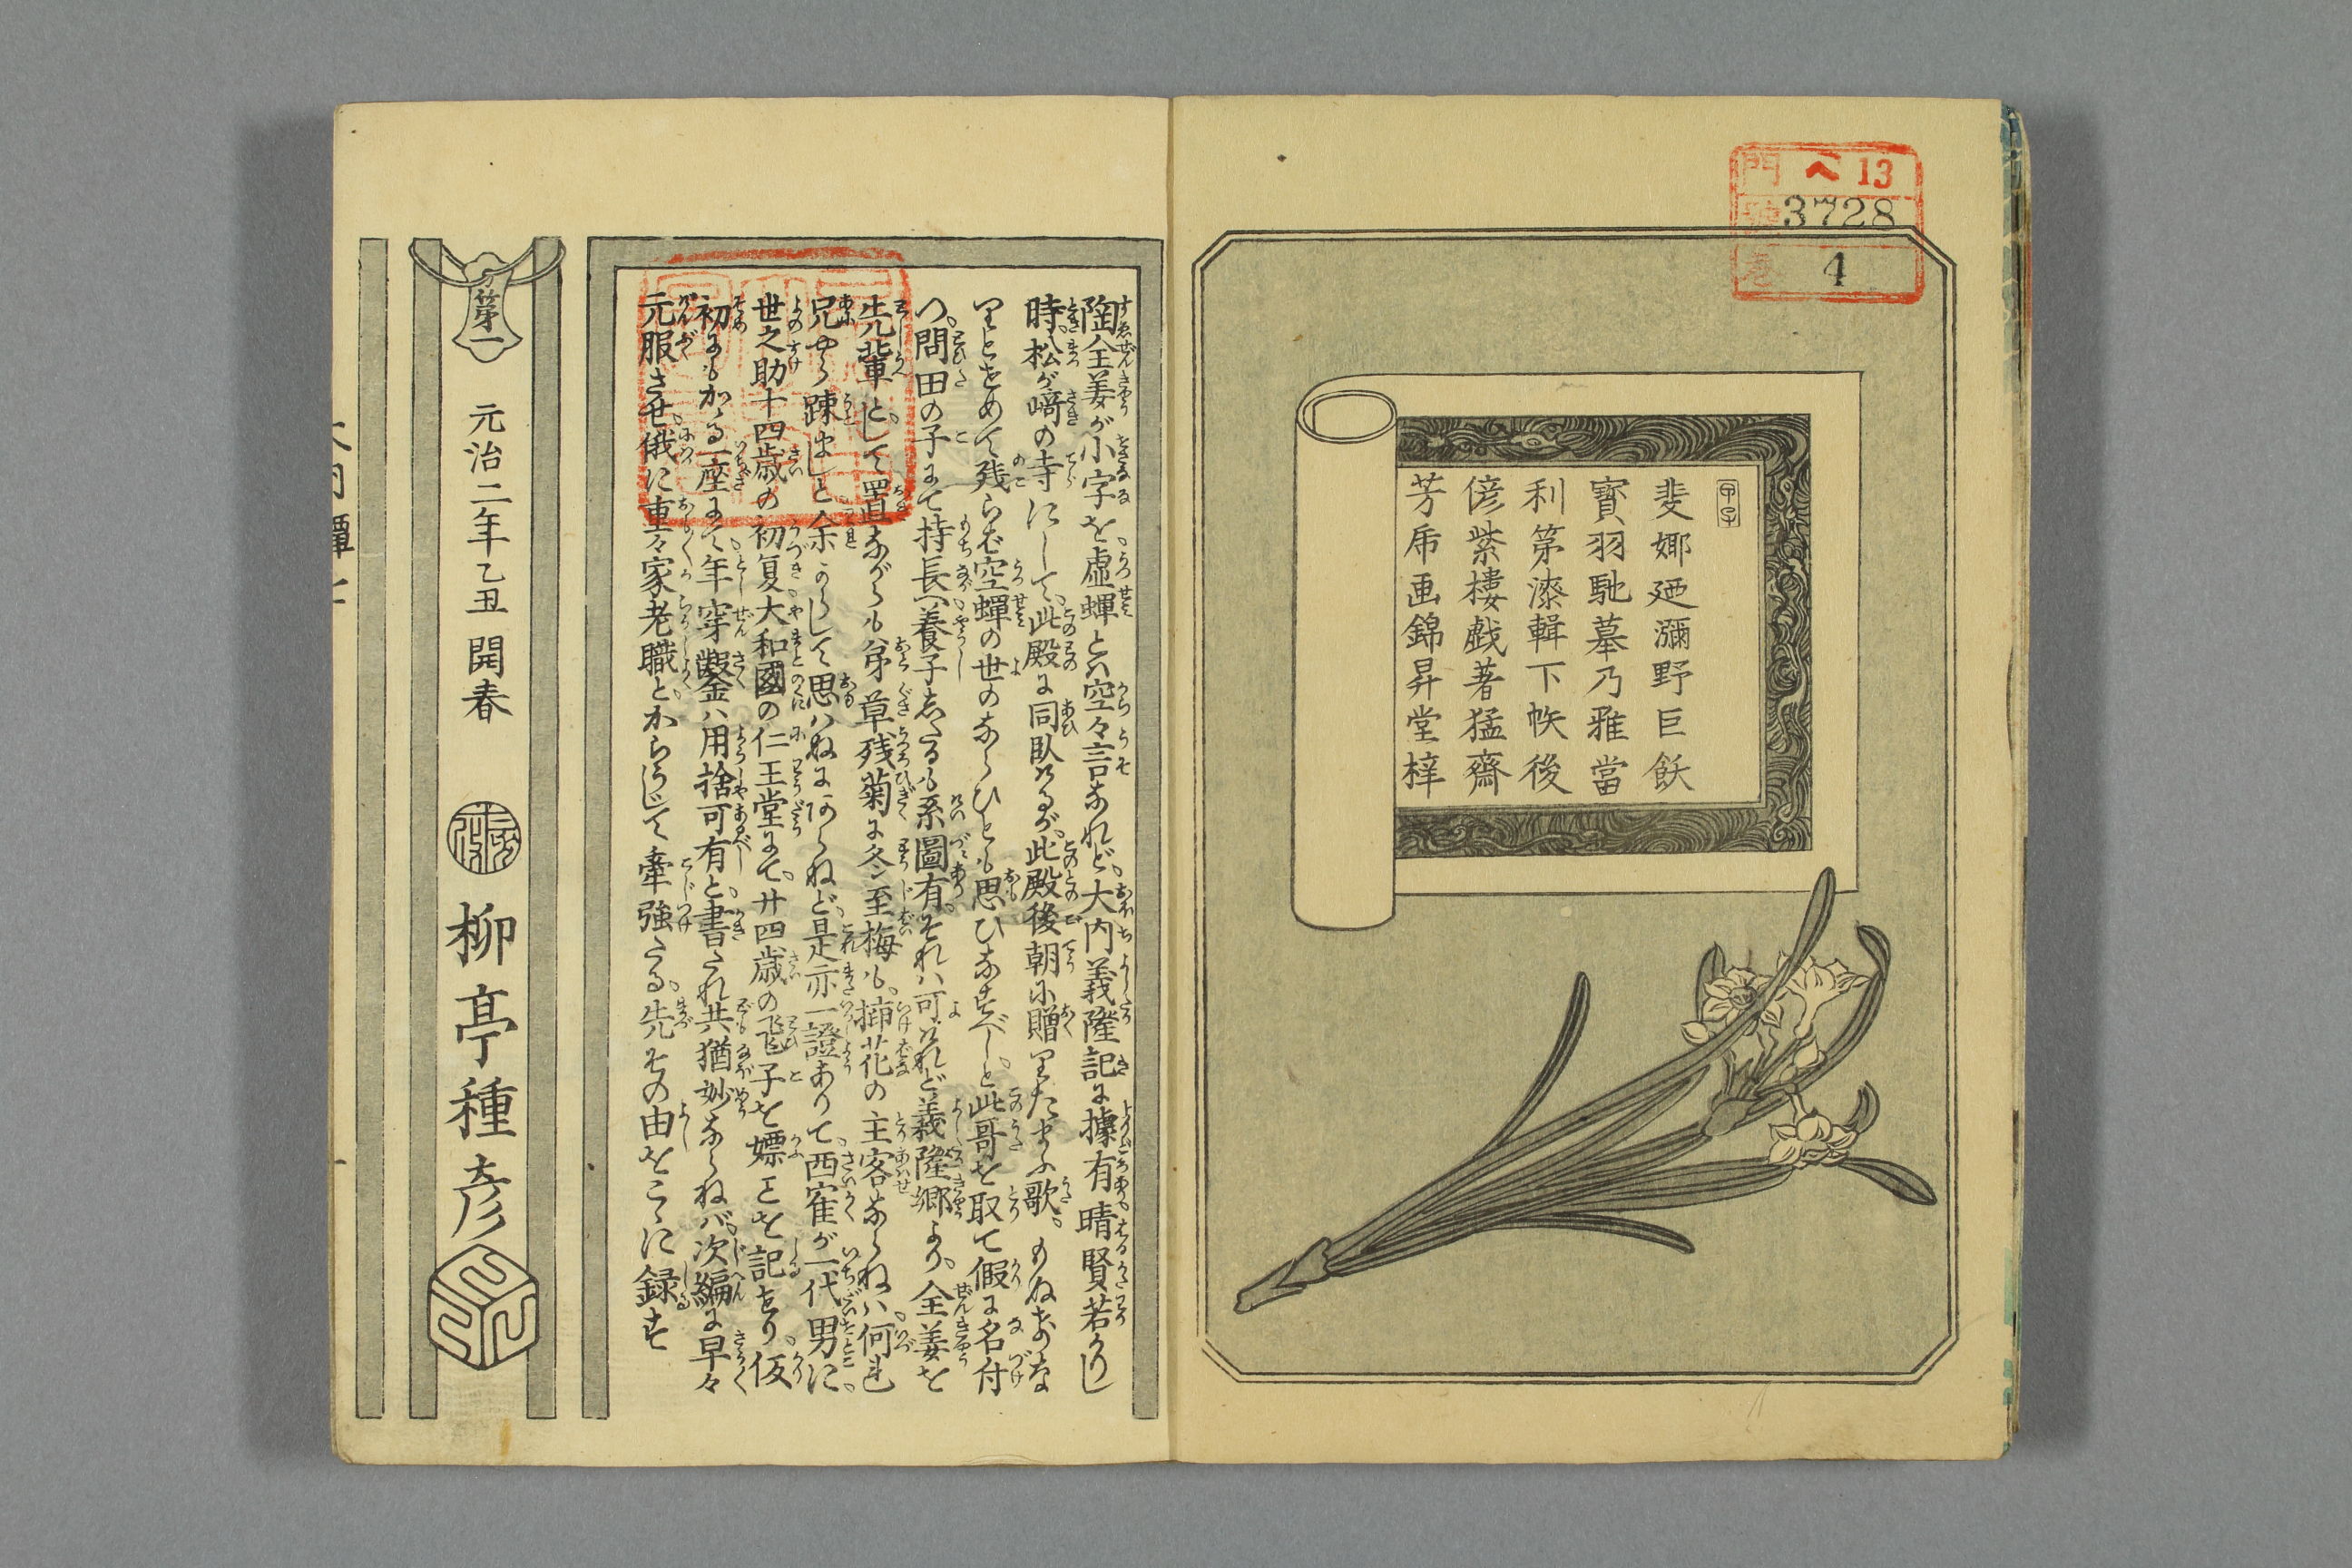 門 ヘ13
號 3728
巻 4
甲子
斐娜廼瀰野巨飫
寳羽馳墓乃雅當
利第漆輯下帙後
偐紫樓戯著猛齋
芳帋画錦昇堂梓
陶全姜が小字を、虚蝉とハ空々言なれど、大内義隆記に據有晴賢若かりし
時、松が﨑の寺にして、此殿に同臥けるが、此殿後朝に贈りたまふ歌。もぬきのな
りとせめて残らば空蝉の世のならひとも思ひなすべし、と此哥を取て假に名付
つ。問田の子にて持長へ養子たるも系圖有。それハ可けれど義隆郷より。全姜を
先輩として置ながらも弟草残菊に冬至梅も、揷花の主客ならねハ、何れ
兄やら疎ましと余りにして思ハぬにあらねど、是亦一證ありて、西寉が一代男に、
世之助十四歳の初夏大和國の仁王堂にて、廿四歳の飛子を嫖ことを記せり。仮
初にもかゝる一座にて、年穿鑿ハ用捨可有と、書たれ共猶妙ならねバ、次編に早々
元服させ、俄に重々家老職と、からうじて牽強たる、先その由をこゝに録す
第一
元治二年乙丑開春
柳亭種彦